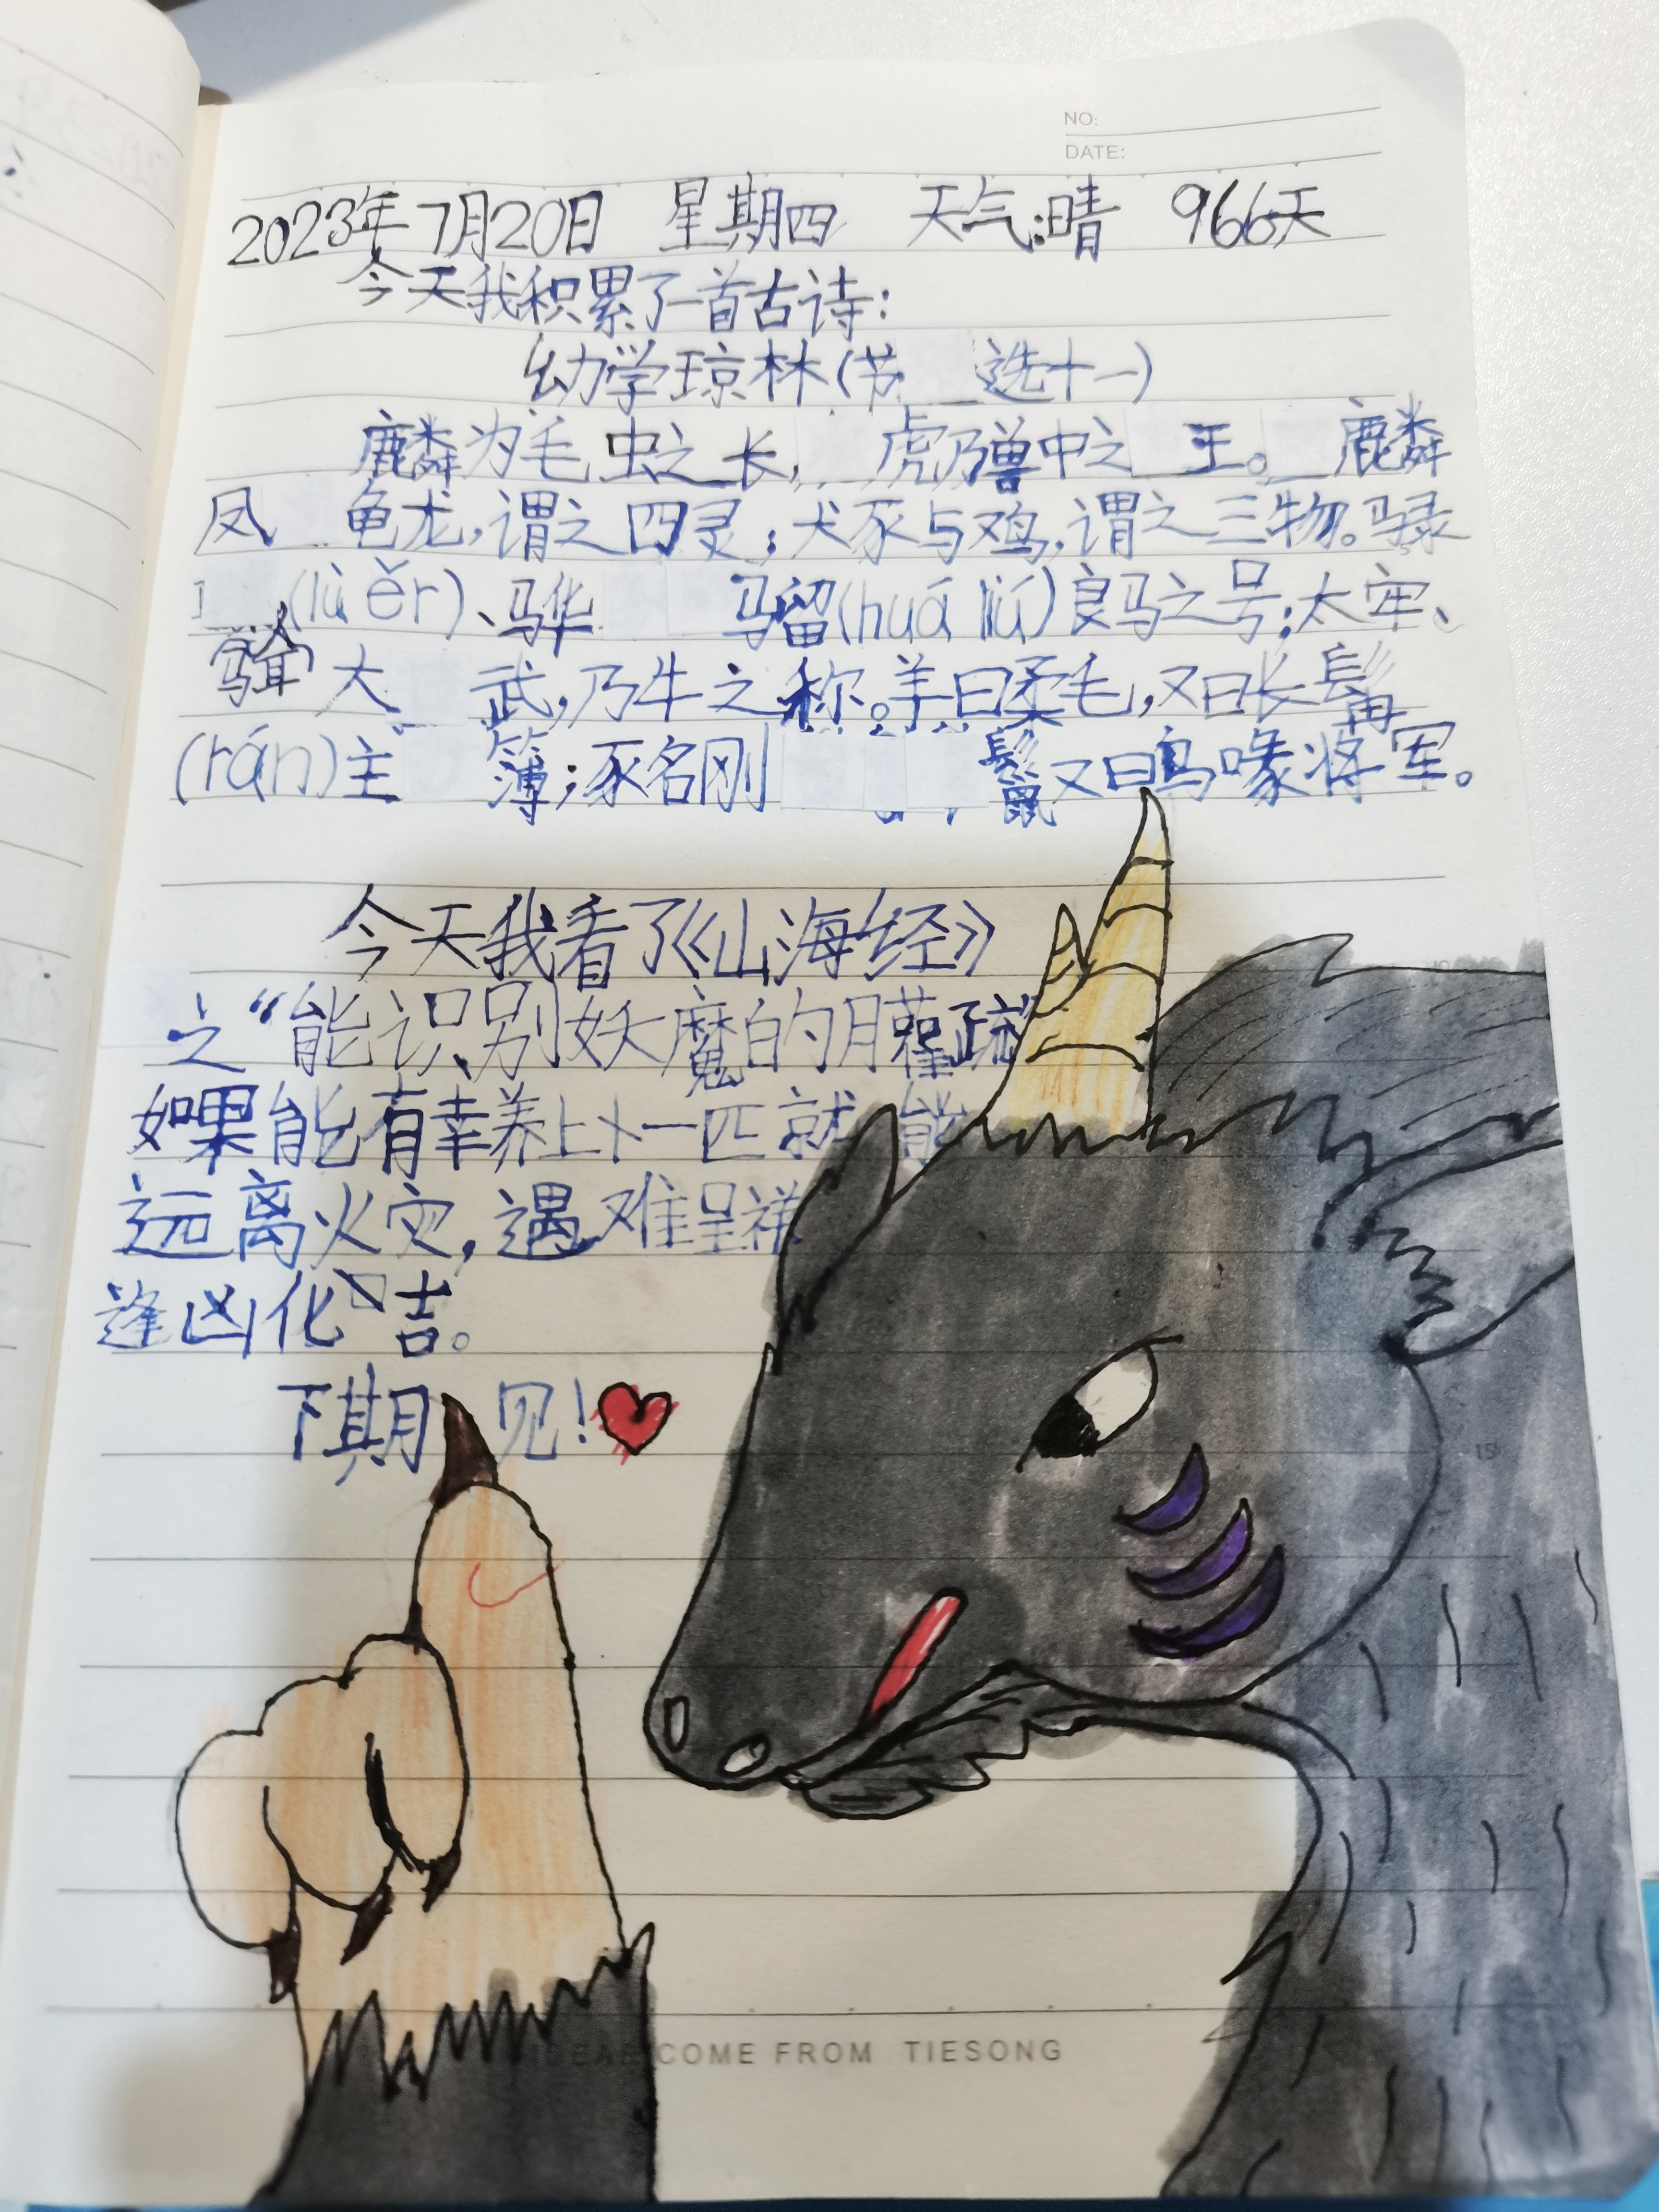 NO:
DATE:
2023年7月20日 星期四 天气:晴 966天
今天我积累了一首古诗:
幼学琼林(节选十一)
麟为毛虫之长,虎乃兽中之王。麟
凤龟龙,谓之四灵;犬豕与鸡,谓之三物。騄
(lù ěr)、骅骝(huá liú)良马之号;太牢、
大武,乃牛之称。羊曰柔毛,又曰长髯
(rán)主簿;豕名刚鬣又曰乌喙将军。
今天我看了《山海经》
之“能识别妖魔的臛疏
如果能有幸养上一匹就能
远离火灾,遇难呈祥
逢凶化吉。
下期见!
COME FROM TIESONG